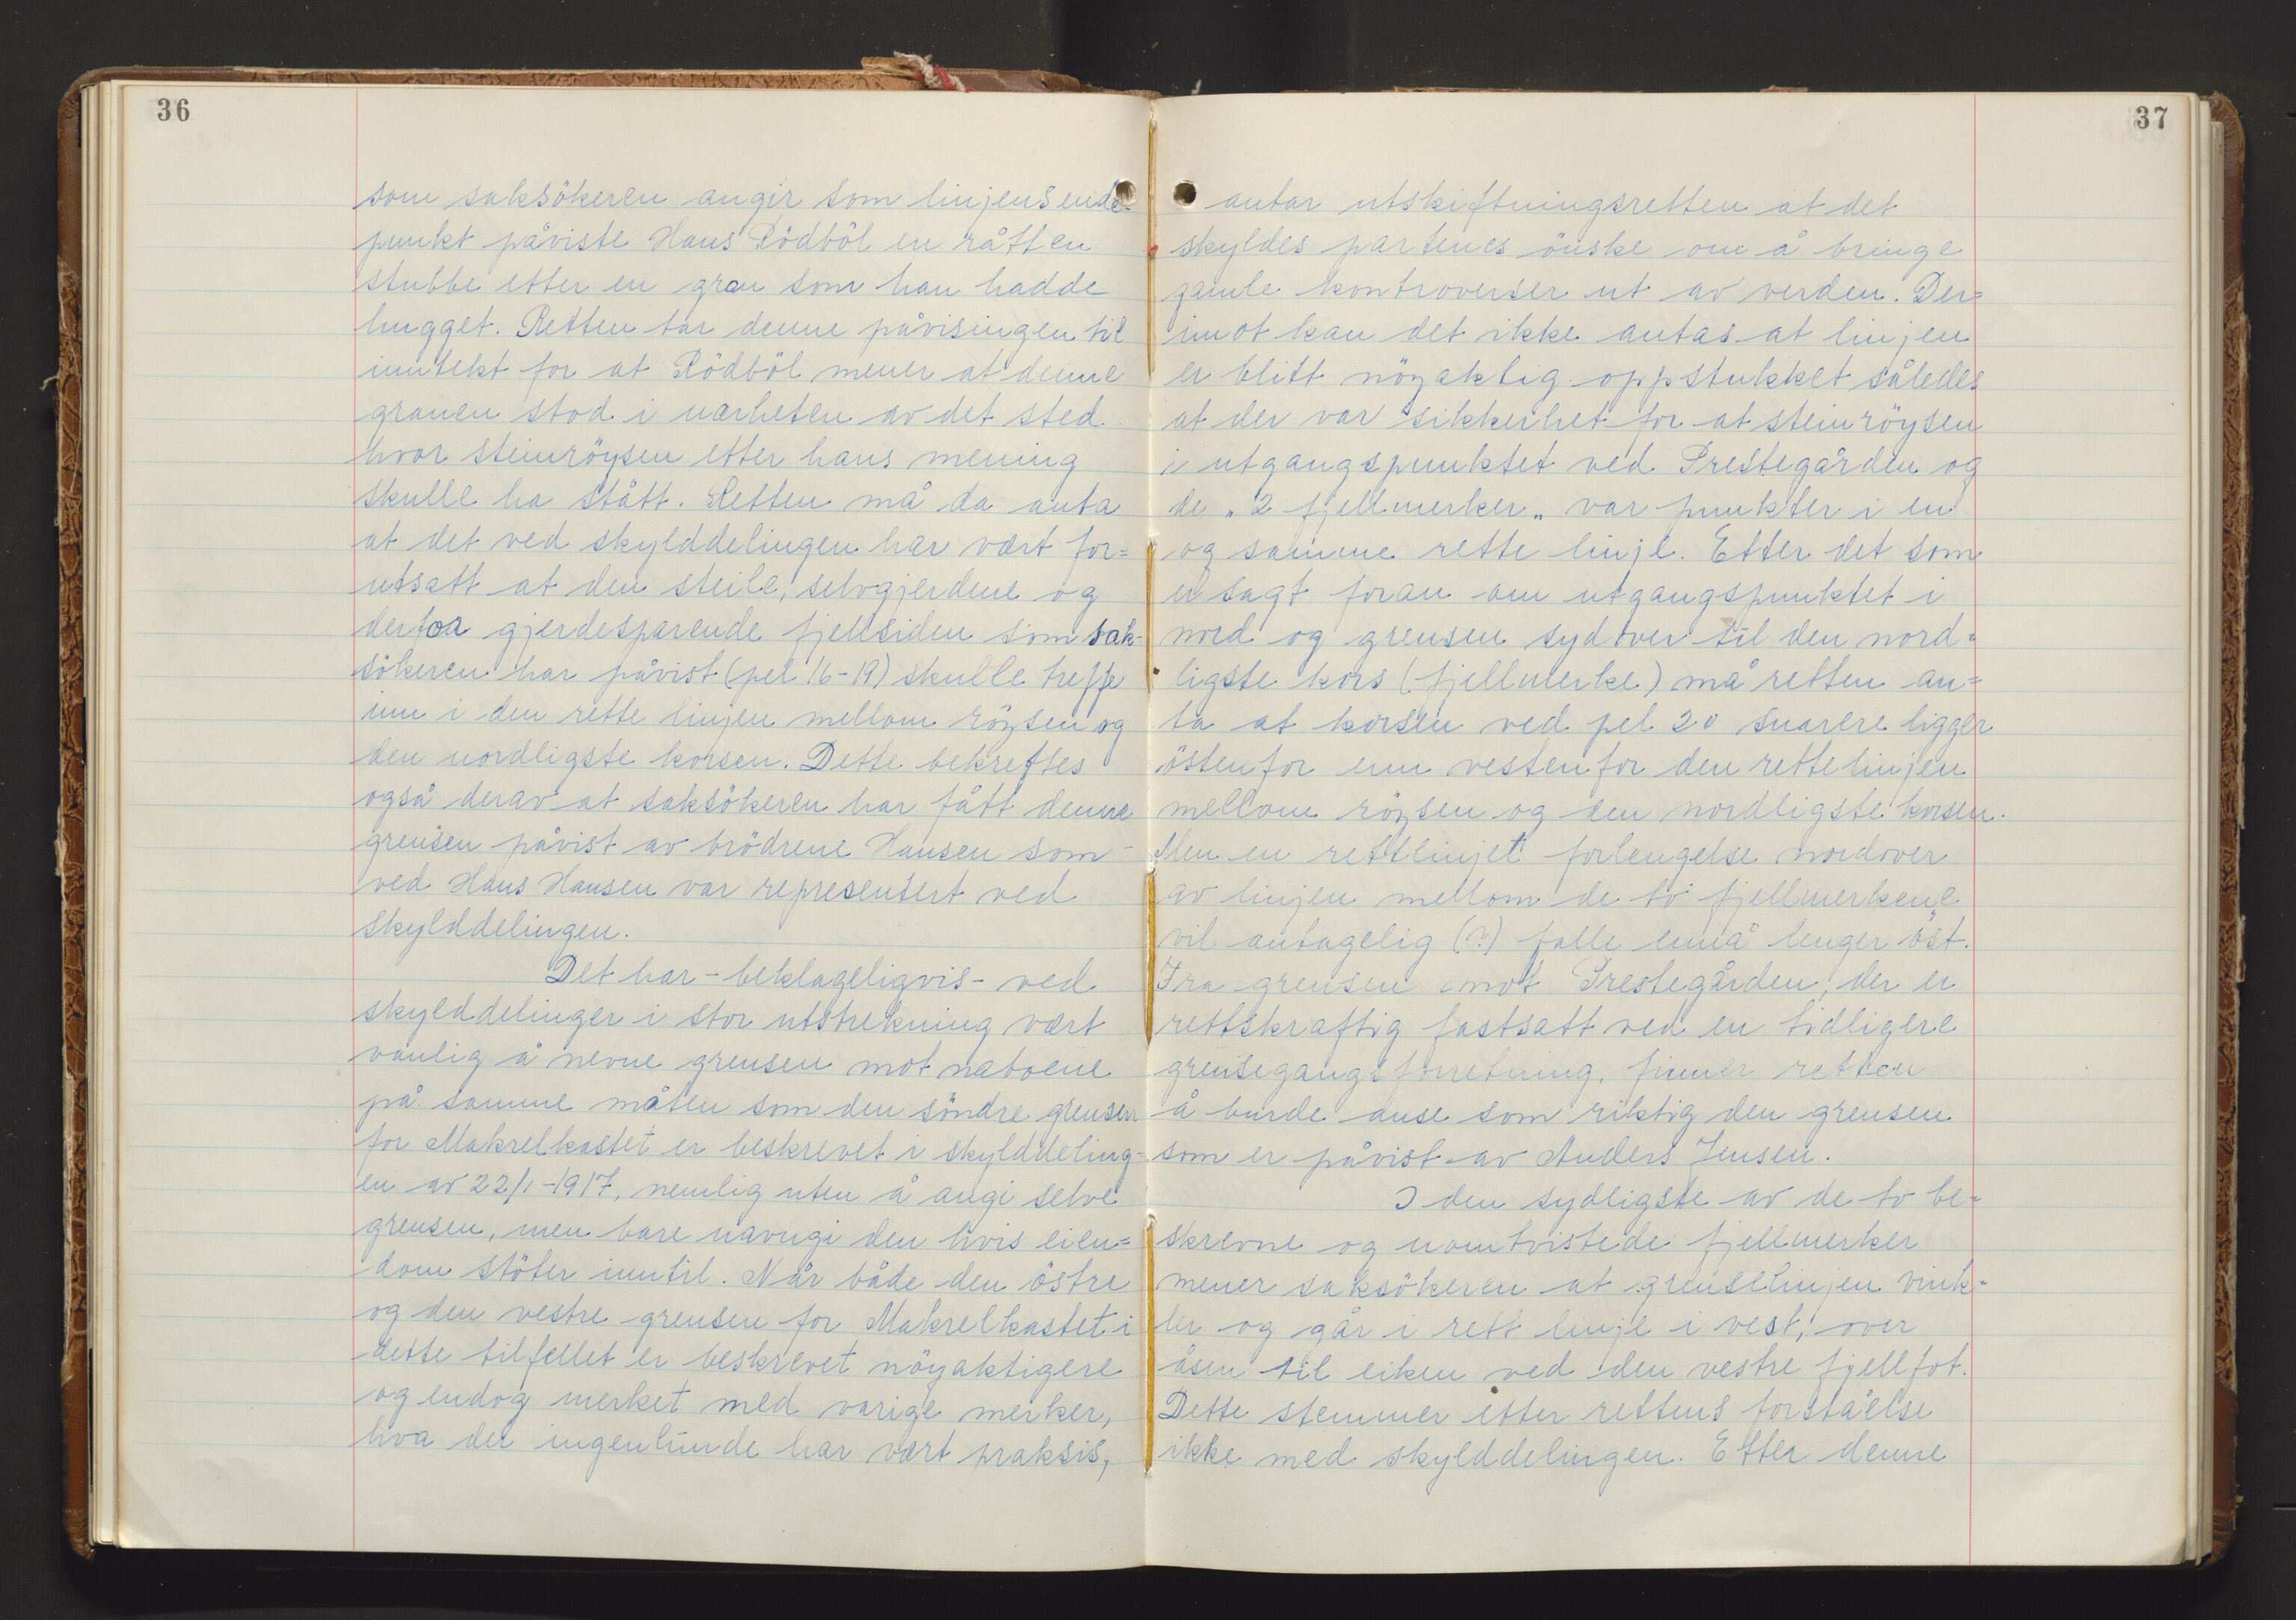 36
som saksökeren angir som linjens ende-
punkt påviste Hans Rödböl en råtten
stubbe etter en gran som han hadde
hugget. Retten tar denne påvisingen til
inntekt for at Rödböl mener at denne
granen stod i nærheten av det sted
hvor steinröysen etter hans mening
skulle ha stått. Retten må da anta
at det ved skylddelingen har vært for=
utsatt at den steile, selvgjerdene og
derfor gjerdesparende fjellsiden som sak-
sökeren har påvist (pel 16-19) skulle treffe
inn i den rette linjen mellom röysen og
den nordligste korsen. Dette bekreftes
også derav at saksökeren har fått denne
grensen påvist av brödrene Hansen som
ved Hans Hansen var representert ved
skylddelingen.
Det har - beklageligvis - ved
skylddelinger i stor utstrekning vært
vanlig å nevne grensen mot naboene
på samme måten som den söndre grensen
for Makrelkastet er beskrevet i skylddeling-
en av 22/1-1917, nemlig uten å angi selve
grensen, men bare navngi den hvis eien=
dom stöter inntil. Når både den östre
og den vestre grensen for Makrelkastet i
dette tilfellet er beskrevet nöyaktigere
og endog merket med varige merker,
hva der ingenlunde har vært praksis,
37
antar utskiftningsretten at det
skyldes partenes önske om å bringe
gamle kontroverser ut av verden. Der=
imot kan det ikke antas at linjen
er blitt nöyaktig oppstukket således
at der var sikkerhet for at steinröysen
i utgangspunktet ved Prestegården og
de „2 fjellmerker„ var punkter i en
og samme rette linje. Etter det som
er sagt foran om utgangspunktet i
nord og grensen sydover til den nord-
ligste kors (fjellmerke) må retten an=
ta at korsen ved pel 20 snarere ligger
östenfor enn vestenfor den rette linjen
mellom röysen og den nordligste korsen.
Men en rettlinjet forlengelse nordover
av linjen mellom de to fjellmerkene
vil antagelig (?) falle ennå lenger öst.
Fra grensen mot Prestegården, der er
rettskraftig fastsatt ved en tidligere
grensegangsforretning, finner retten
å burde anse som riktig den grensen
som er påvist av Anders Jensen.
I den sydligste av de to be-
skrevne og uomtvistede fjellmerker
mener saksökeren at grenselinjen vink-
ler og går i rett linje i vest, over
åsen til eiken ved den vestre fjellfot.
Dette stemmer etter rettens forståelse
ikke med skylddelingen. Etter denne